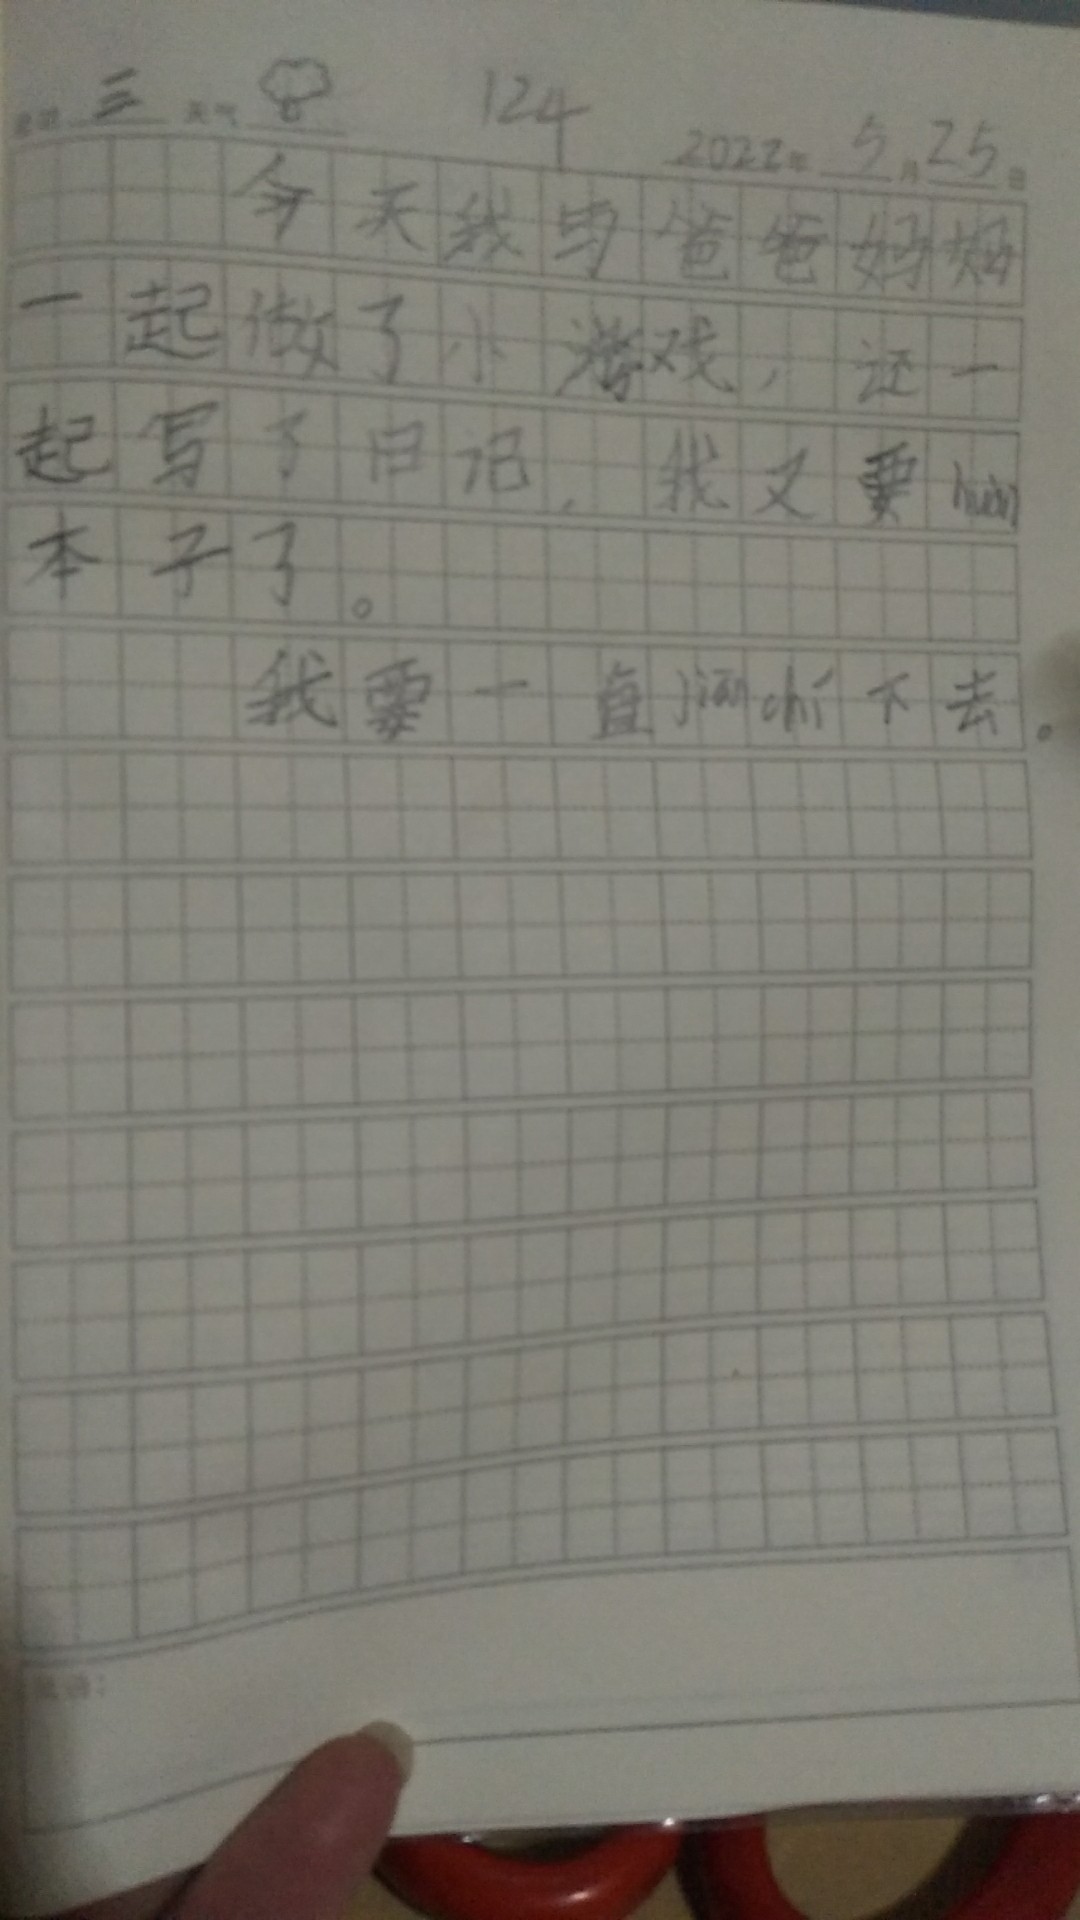 星期 三 天气 124 2022年 5月25日
今天我与爸爸妈妈
一起做了小游戏，还一
起写了日记，我又要huàn
本子了。
我要一直jiānchí下去。